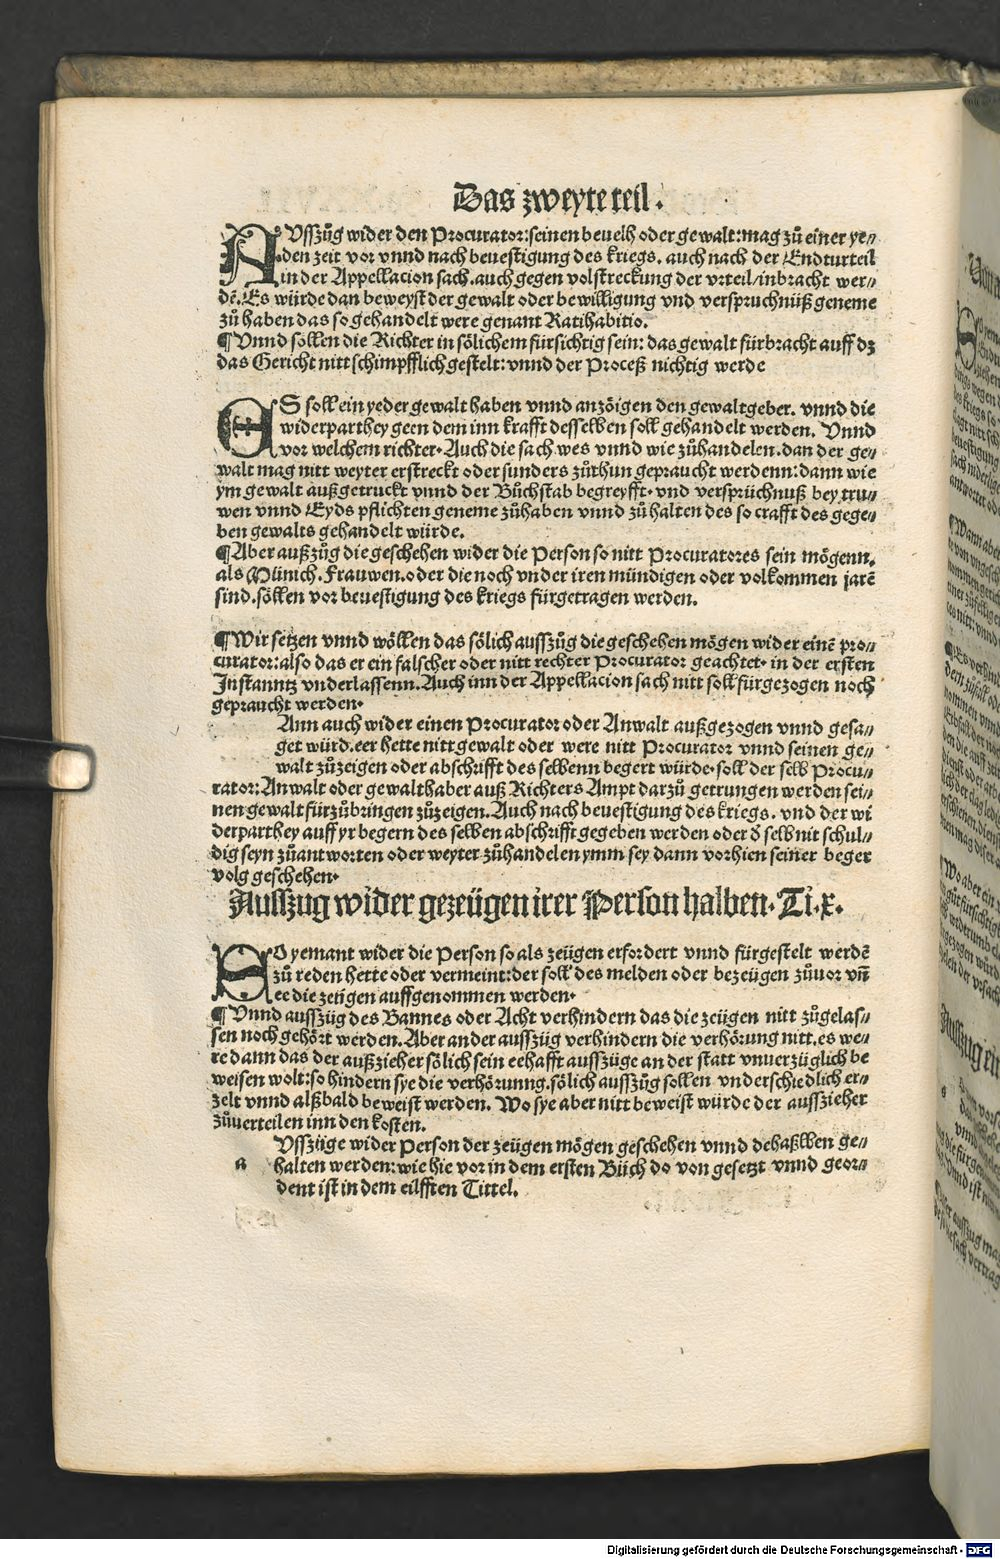 Das zweyte teil.
AVsszůg wider den Procurator: seinen beuelh oder gewalt: mag zů einer ye⸗
den zeit vor vnnd nach beuestigung des kriegs. auch nach der Endturteil
in der Appellacion sach. auch gegen volstreckung der vrteil/inbracht wer⸗
dē. Es würde dan beweyst der gewalt oder bewilligung vnd verspruchnüß geneme
zů haben das so gehandelt were genant Ratihabitio.
¶Vnnd sollen die Richter in sölichem fürsichtig sein: das gewalt fürbracht auff dz
das Gericht nitt schimpfflich gestelt: vnnd der Proceß nichtig werde
ES soll ein yeder gewalt haben vnnd anzöigen den gewaltgeber. vnnd die
widerparthey geen dem inn krafft desselben soll gehandelt werden. Vnnd
vor welchem richter. Auch die sach wes vnnd wie zůhandelen. dan der ge⸗
walt mag nitt weyter erstreckt oder sunders zůthun gepraucht werdenn: dann wie
ym gewalt außgetruckt vnnd der Bůchstab begreyfft. vnd versprüchnuß bey tru⸗
wen vnnd Eyds pflichten geneme zůhaben vnnd zů halten des so crafft des gege⸗
ben gewalts gehandelt würde.
¶Aber außzůg die geschehen wider die Person so nitt Procuratores sein mögenn.
als Münich. Frauwen. oder die noch vnder iren mündigen oder volkommen jarē
sind. söllen vor beuestigung des kriegs fürgetragen werden.
¶Wir setzen vnnd wöllen das sölich ausszůg die geschehen mögen wider einē pro⸗
curator: also das er ein falscher oder nitt rechter Procurator geachtet. in der ersten
Instanntz vnderlassenn. Auch inn der Appellacion sach nitt soll fürgezogen noch
gepraucht werden.
Ann auch wider einen Procurator oder Anwalt außgezogen vnnd gesa⸗
get würd. eer hette nitt gewalt oder were nitt Procurator vnnd seinen ge⸗
walt zůzeigen oder abschrifft des selbenn begert würde. soll der selb Procu⸗
rator: Anwalt oder gewalthaber auß Richters Ampt darzů getrungen werden sei⸗
nen gewalt fürzůbringen zůzeigen. Auch nach beuestigung des kriegs. vnd der wi
derparthey auff yr begern des selben abschrifft gegeben werden oder d̄ selb nit schul⸗
dig seyn zůantworten oder weyter zůhandelen ymm sey dann vorhien seiner beger
volg geschehen.
Ausszug wider gezeügen irer Person halben. Ti. x.
SO yemant wider die Person so als zeügen erfordert vnnd fürgestelt werdē
zů reden hette oder vermeint: der soll des melden oder bezeügen zůuor vn̄
ee die zeügen auffgenommen werden.
¶Vnnd ausszüg des Bannes oder Acht verhindern das die zeügen nitt zůgelas⸗
sen noch gehört werden. Aber ander ausszüg verhindern die verhörung nitt. es we⸗
re dann das der außzieher sölich sein eehafft ausszüge an der statt vnuerzüglich be
weisen wolt: so hindern sye die verhörunng. sölich ausszüg sollen vnderschiedlich er⸗
zelt vnnd alßbald beweist werden. Wo sye aber nitt beweist würde der ausszieher
zůuerteilen inn den kosten.
Vsszüge wider Person der zeügen mögen geschehen vnnd dehaßlben ge⸗
a halten werden: wie hie vor in dem ersten Bůch do von gesetzt vnnd geor⸗
dent ist in dem eilfften Tittel.
Digitalisierung gefördert durch die Deutsche Forschungsgemeinschaft - DFG